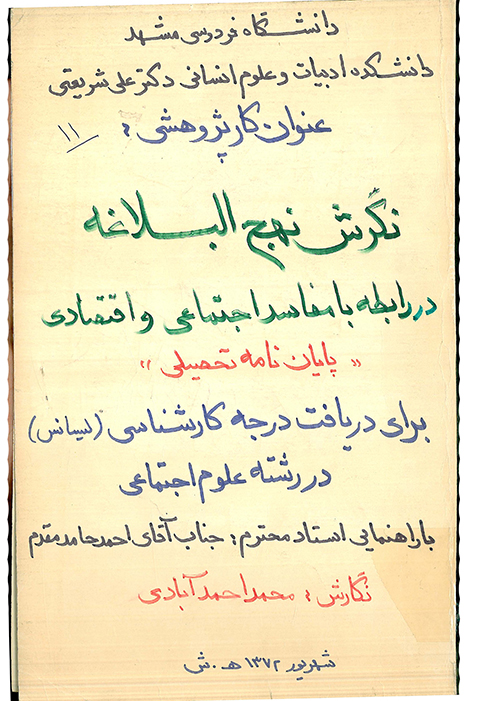 دانشگاه فردوسی مشهد
دانشکده ادبیات و علوم انسانی دکتر علی شریعتی
عنوان کار پژوهشی :
۱۱
نگرش نهج البلاغه
در رابطه با مفاسد اجتماعی و اقتصادی
« پایان نامه تحصیلی »
برای دریافت درجه کارشناسی (لیسانس)
در رشته علوم اجتماعی
با راهنمایی استاد محترم : جناب آقای احمد حامد مقدم
نگارش : محمد احمدآبادی
شهریور ۱۳۷۲ ه . ش